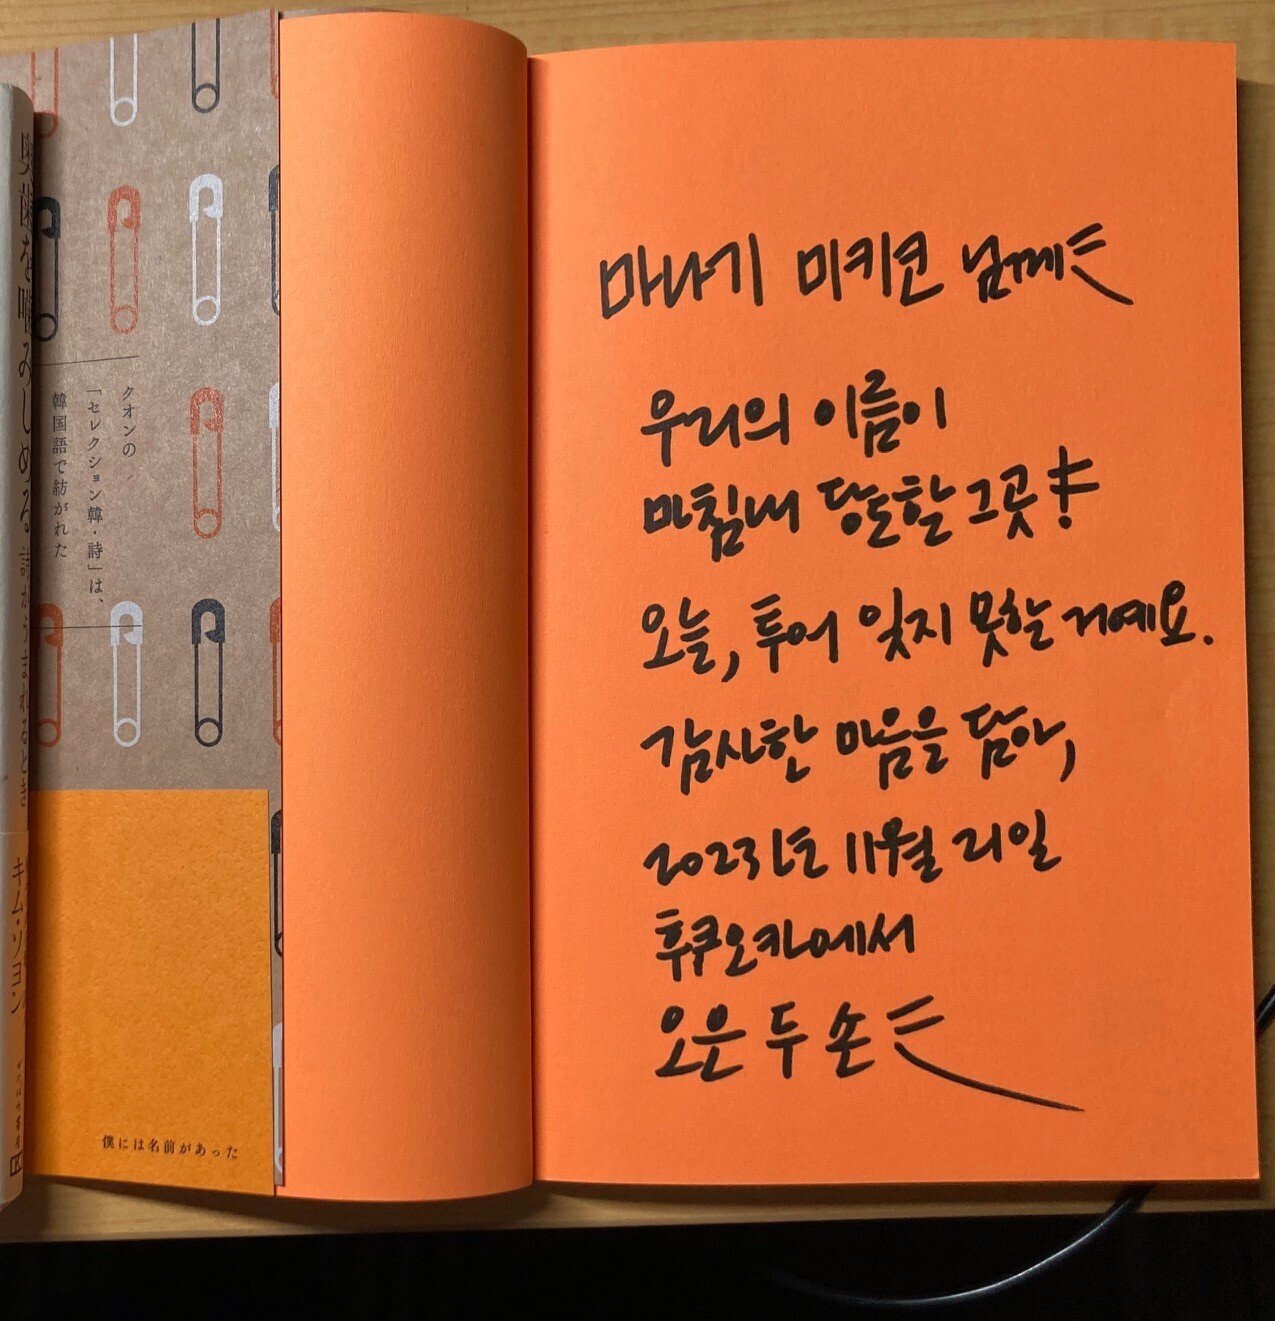 마나기 미키코 님께
우리의 이름이
마침내 당도할 그곳!
오늘, 투어 잊지 못할 거예요.
감사한 마음을 담아,
2023년 11월 21일
후쿠오카에서
오은 두 손
クオンの
「セレクション韓・詩」は、
韓国語で紡がれた
僕には名前があった
奥歯を噛みしめる 詩がうまれるとき
キム・ソヨン